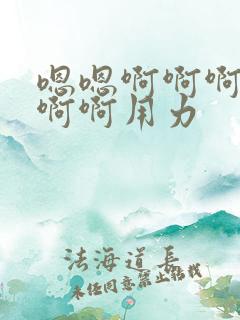 嗯嗯啊啊啊
啊啊用力
法海道长
未经同意禁止转载